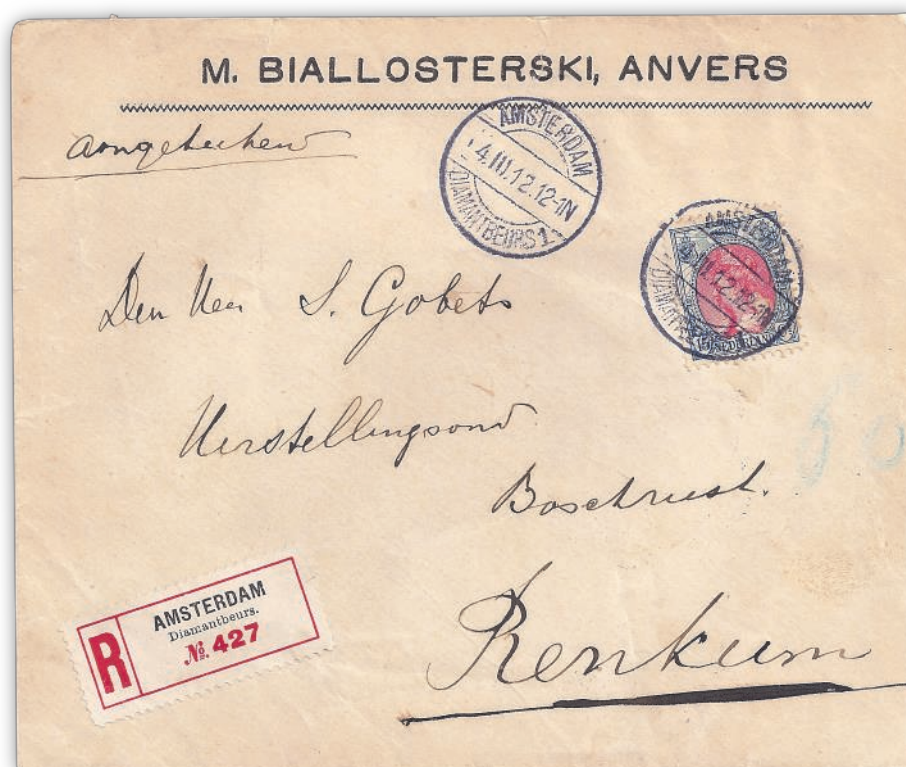 M. BIALLOSTERSKI, ANVERS
Aangetekend
AMSTERDAM
4.III.12.12-1N
DIAMANTBEURS 1
AMSTERDAM
III.12.12-1N
NEDERLAND
Den Heer S. Gobets
Herstellingsoord
Boschrust.
Renkum
R
AMSTERDAM
Diamantbeurs.
№. 427